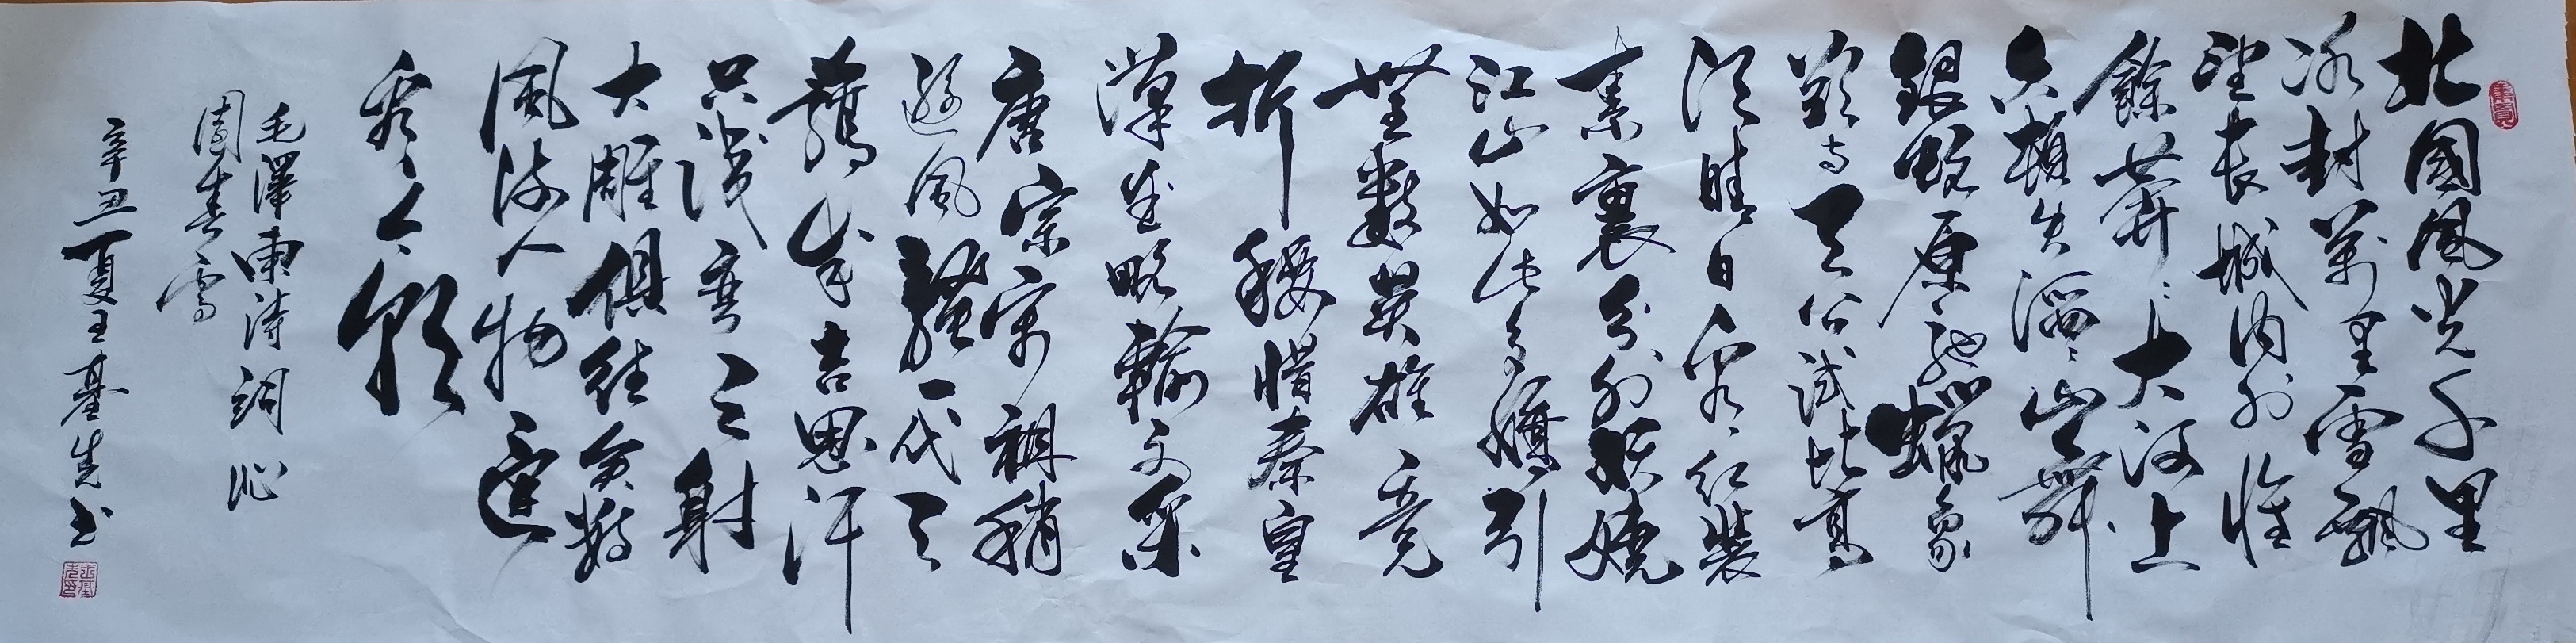 北國風光千里
冰封萬里雪飄
望長城内外惟
餘莽々大河上
下頓失滔々山舞
銀蛇原馳蠟象
欲與天公試比高
須晴日看紅裝
素裹分外妖嬈
江山如此多嬌引
無數英雄競
折腰惜秦皇
漢武略輸文采
唐宗宋祖稍
遜風騷一代天
驕成吉思汗
只識彎弓射
大雕俱往矣數
風流人物還
看今朝
毛澤東詩詞沁
園春雪
辛丑夏王基先书